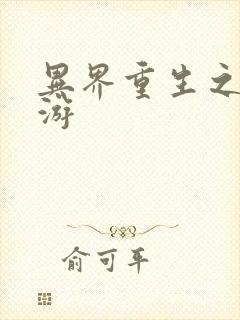 異界重生之
游
俞可平